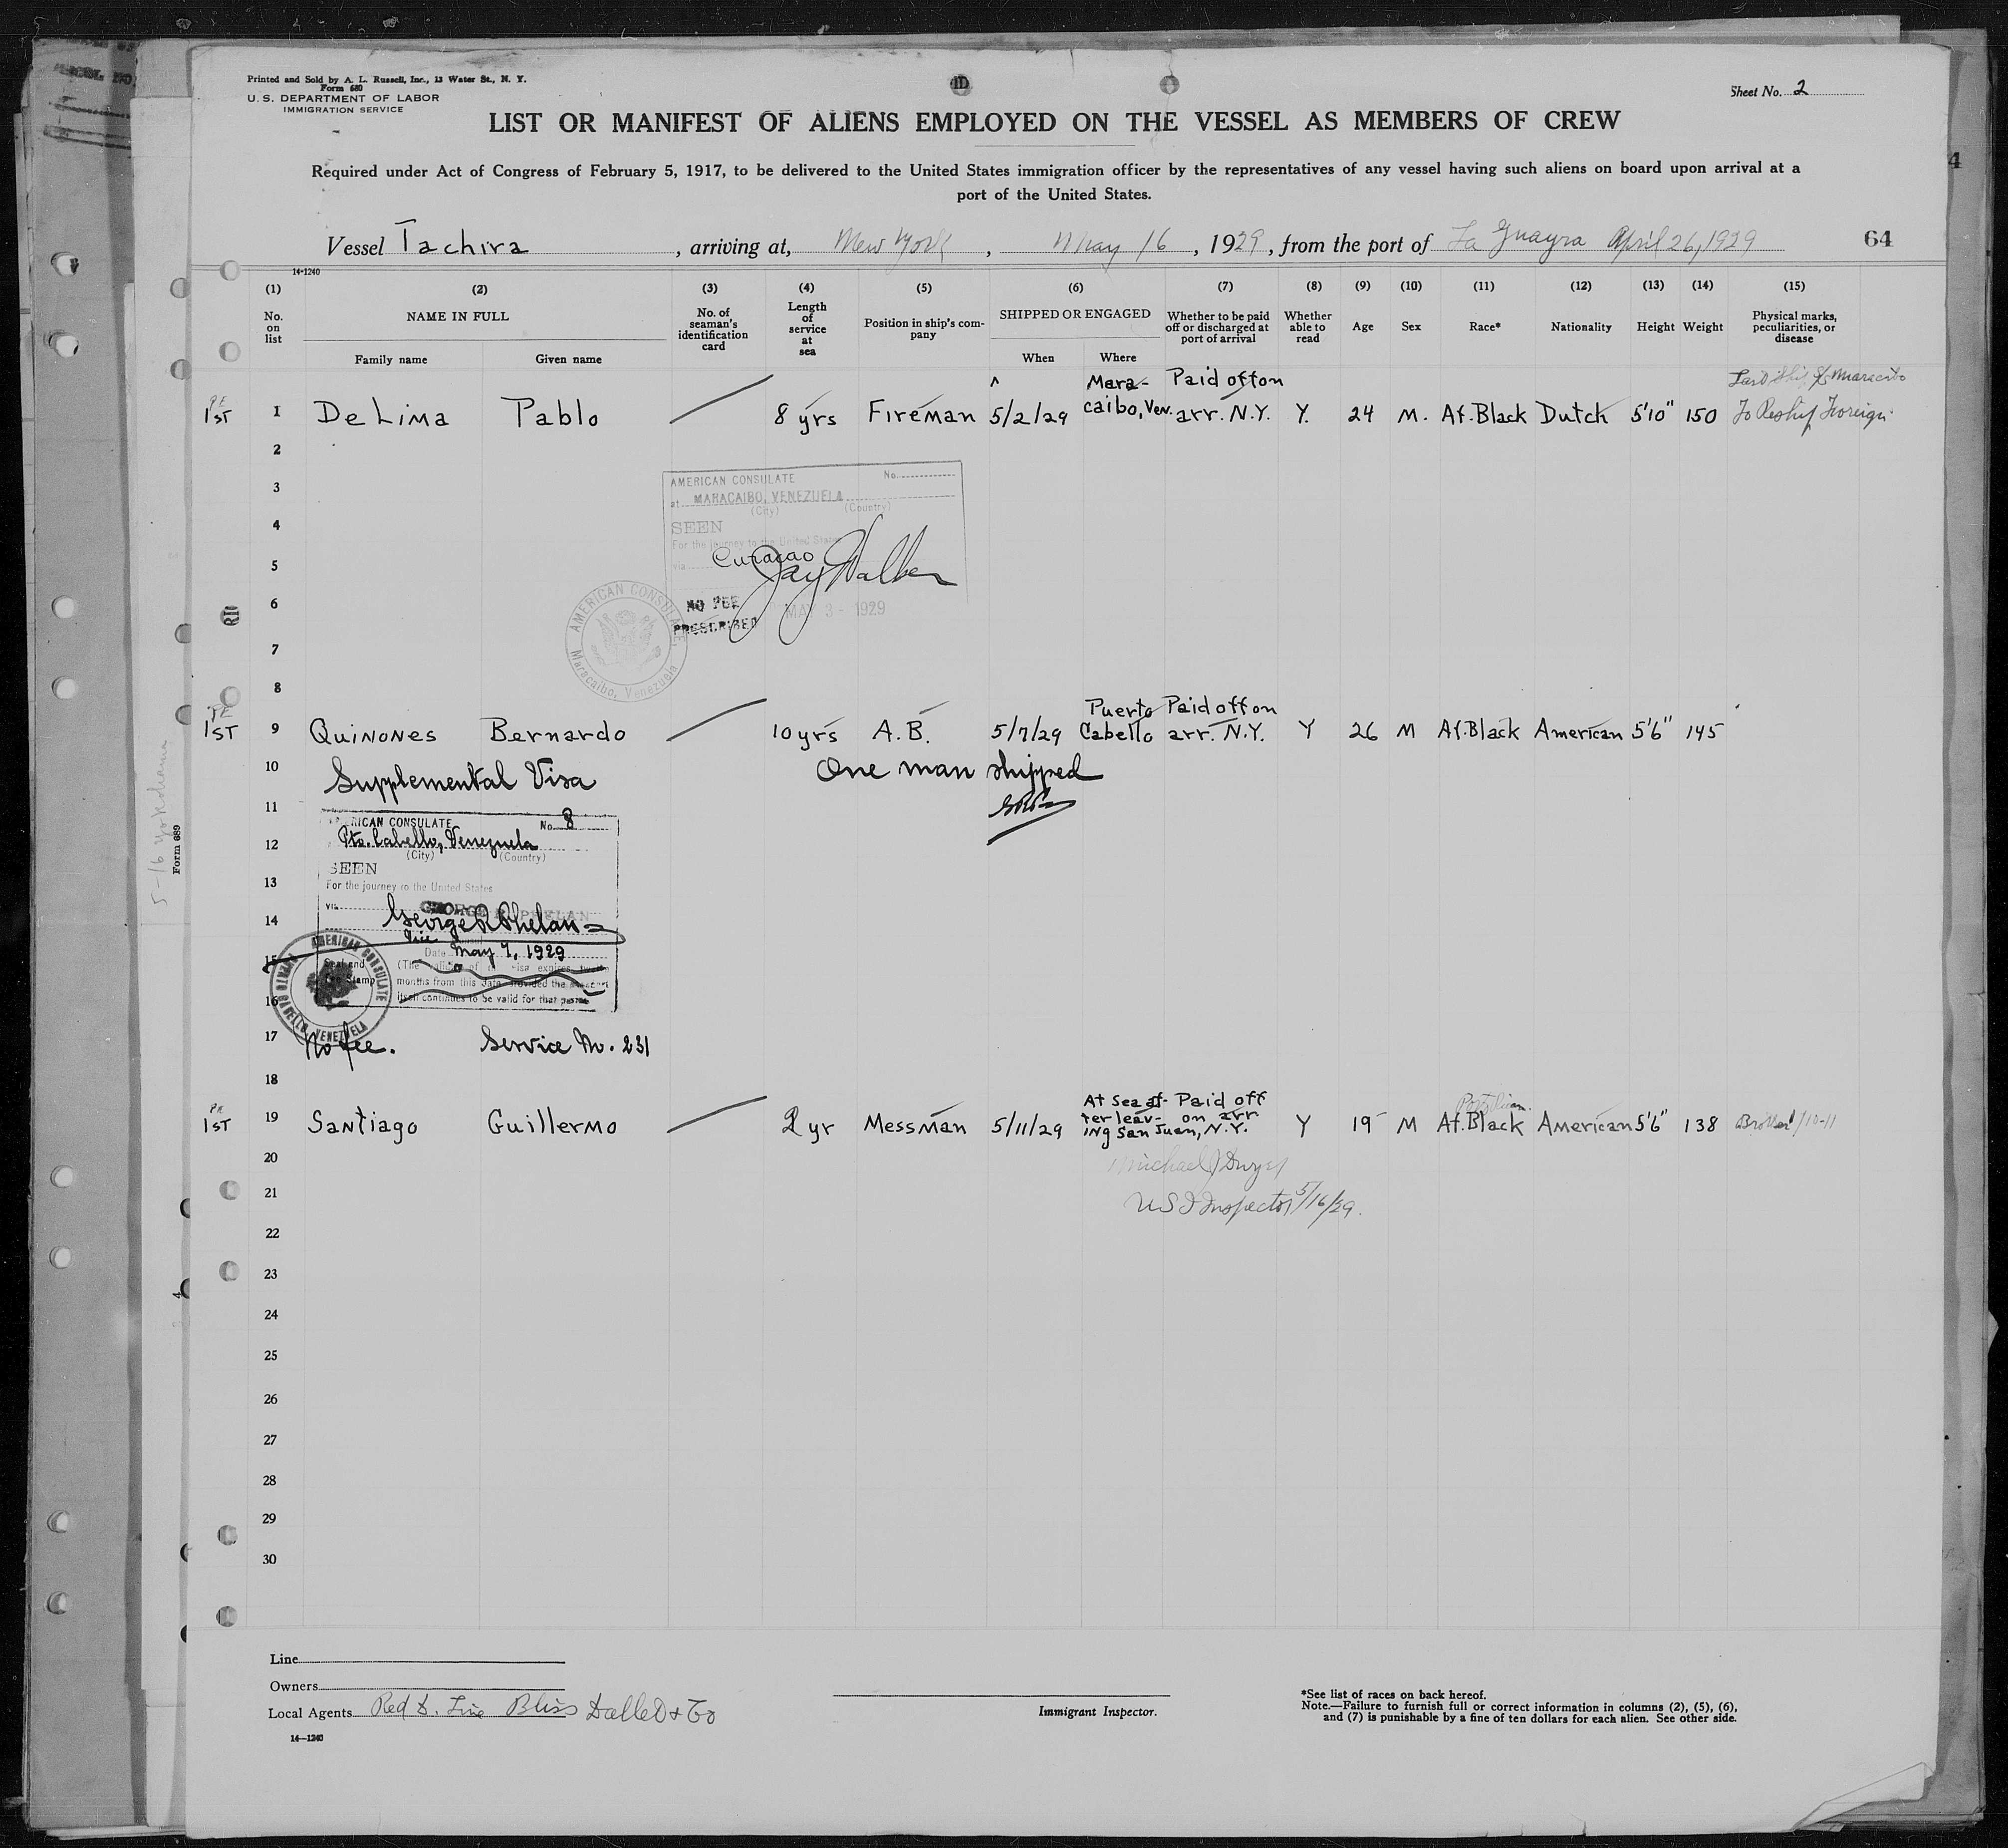 Printed and Sold by A. L. Russell, Inc., 13 Water St., N. Y.
Form 680
U. S. DEPARTMENT OF LABOR
IMMIGRATION SERVICE
Sheet No. 2
LIST OR MANIFEST OF ALIENS EMPLOYED ON THE VESSEL AS MEMBERS OF CREW
Required under Act of Congress of February 5, 1917, to be delivered to the United States immigration officer by the representatives of any vessel having such aliens on board upon arrival at a
port of the United States.
Vessel Tachira, arriving at, New York, May 16, 1929, from the port of La Guayra April 26, 1929
64
14-1240
(1) (2) (3) (4) (5) (6) (7) (8) (9) (10) (11) (12) (13) (14) (15)
No. on list
NAME IN FULL
Family name Given name
No. of seaman's identification card
Length of service at sea
Position in ship's company
SHIPPED OR ENGAGED
When Where
Whether to be paid off or discharged at port of arrival
Whether able to read
Age
Sex
Race*
Nationality
Height
Weight
Physical marks, peculiarities, or disease
1ST 1 De Lima Pablo 8 yrs Fireman 5/2/29 Maracaibo, Ven. Paid off on arr. N.Y. Y. 24 M. Af. Black Dutch 5'10" 150 To Reship Foreign
2
3
AMERICAN CONSULATE No.
at MARACAIBO, VENEZUELA
(City) (Country)
4
SEEN
For the journey to the United States
5
via Curacao
Jay Walker
6
NO FEE
PRESCRIBED
MAY 3 - 1929
AMERICAN CONSULATE
Maracaibo, Venezuela
7
8
1ST 9 Quinones Bernardo 10 yrs A.B. 5/7/29 Puerto Cabello Paid off on arr. N.Y. Y 26 M Af. Black American 5'6" 145
10 Supplemental Visa One man shipped
11
AMERICAN CONSULATE No. 8
12 Pto. Cabello, Venezuela
(City) (Country)
SEEN
13
For the journey to the United States
via
GEORGE R. PHELAN
14 George R Phelan
Vice Consul
Date May 7, 1929
15
Seal and
Fee Stamp
(The validity of this visa expires twelve
months from this date provided the passport
itself continues to be valid for that period
16
AMERICAN CONSULATE
PUERTO CABELLO, VENEZUELA
17 No fee. Service No. 231
18
1ST 19 Santiago Guillermo 2 yr Messman 5/11/29 At sea after leaving San Juan, Paid off on arr. N.Y. Y 19 M Af. Black American 5'6" 138
20 Michael J Dwyer
21 U S I Inspector 5/16/29.
22
23
24
25
26
27
28
29
30
Line
Owners
Local Agents Red D. Line Bliss Dallett & Co
14-1240
Immigrant Inspector.
*See list of races on back hereof.
Note.—Failure to furnish full or correct information in columns (2), (5), (6),
and (7) is punishable by a fine of ten dollars for each alien. See other side.
Form 689